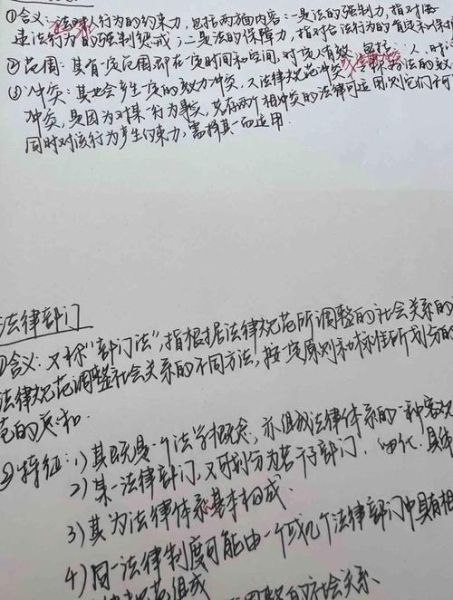 ①含义：法律对人行为的约束力，包括两方面内容：一是法的强制力，指对
违法行为的强制惩戒；二是法的保障力，指对合法行为的肯定和保护
②范围：其有一定范围，即在一定时间和空间，对
③冲突：其也会产生一定的效力冲突，又法律规范冲突，
冲突，是因为对某一行为事实，先存两个相冲突的法律可适用，则它们不可
同时对该行为产生约束力，需择其一而适用.
法律部门
①含义：又称“部门法”，指根据法律规范所调整的社会关系的
法律规范调整社会关系的不同方法，按一定原则和标准所划分的
范的总和.
②特征：1）其既是一个法学概念，亦组成法律体系的一种客观
2）某一法律部门，又可划分为若干子部门，细化、具体
3）其为法律体系基本构成.
4）同一法律制度可能由一个或几个法律部门中具有相
规范组成
调整的社会关系、